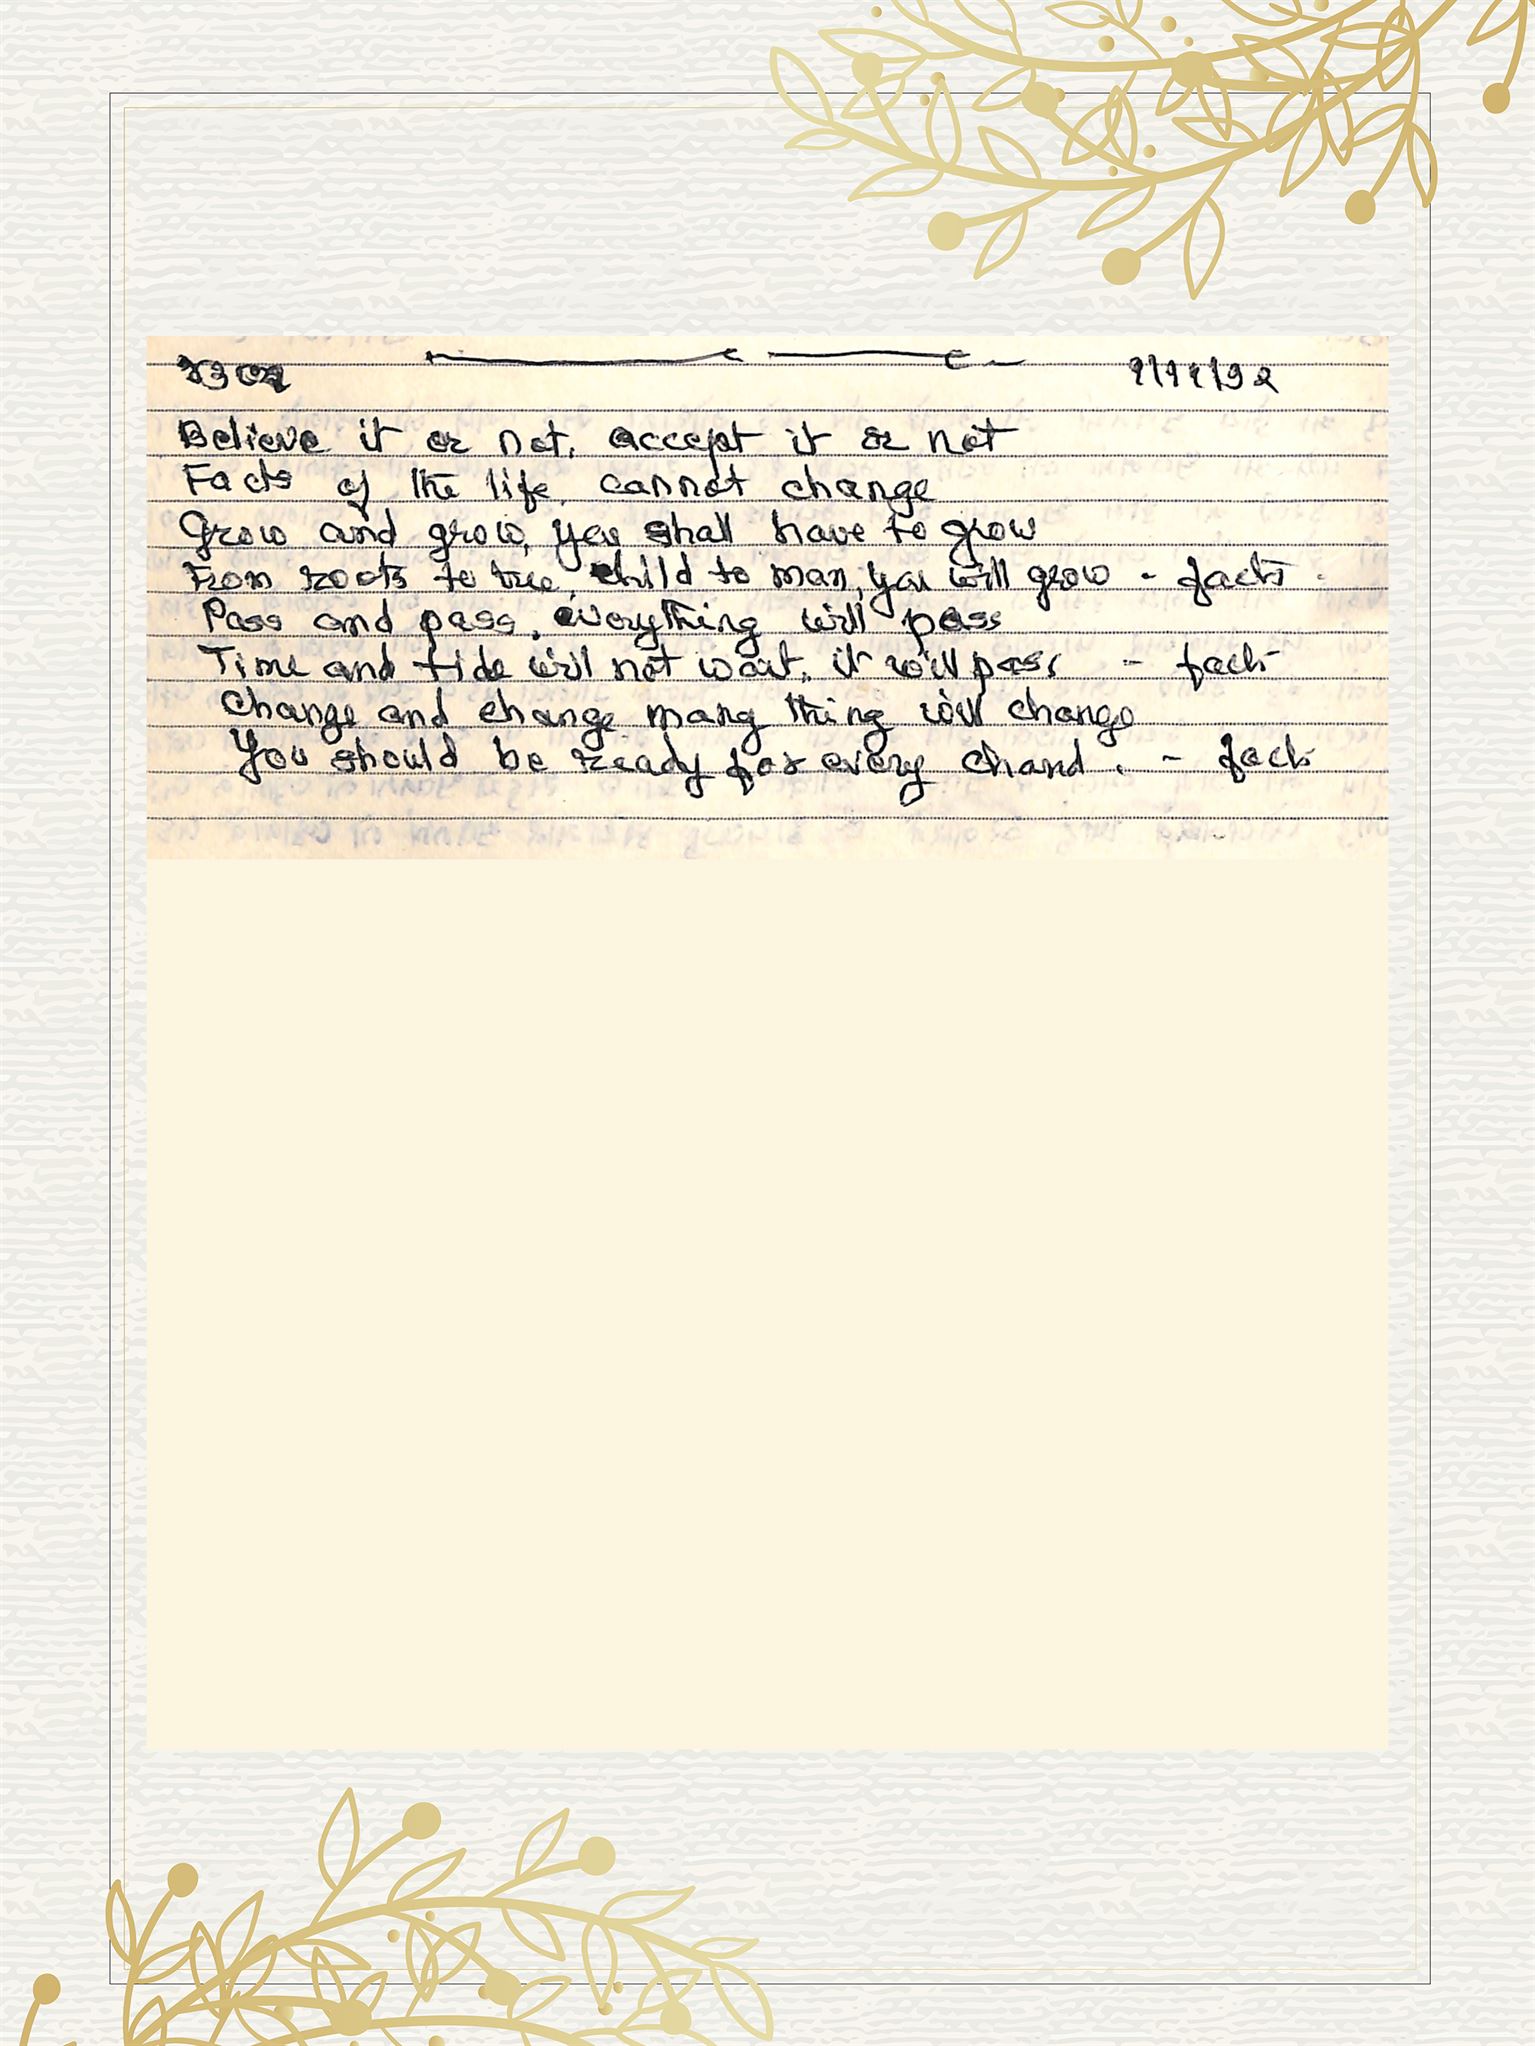 Believe it or not, accept it or not
Facts of the life, cannot change
Grow and grow, you shall have to grow
From roots to tree, child to man, you will grow - facts
Pass and pass, everything will pass
Time and tide will not wait, it will pass - fact
Change and change many thing will change
You should be ready for every chand. - fact